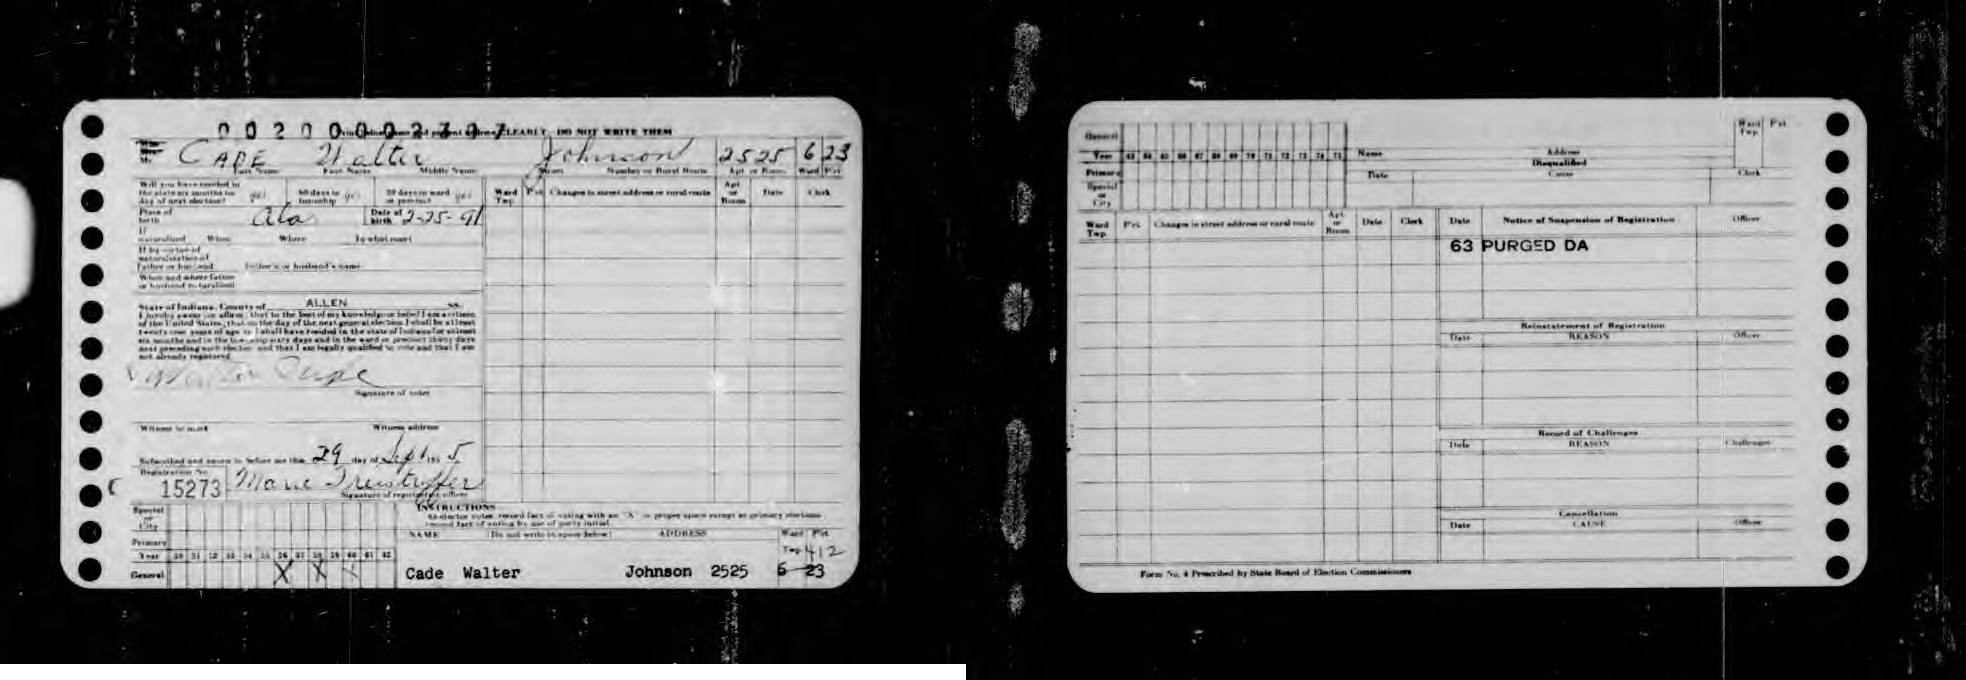 0020 0002707
Print your name and present address CLEARLY DO NOT WRITE THEM
Mr. CADE Walter Johnson 2525 6 23
Last Name First Name Middle Name Street Number or Rural Route Apt. or Room Ward Pct
Will you have resided in the state six months on day of next election? yes 60 days in township yes 30 days in ward or precinct yes
Ward Twp. Pct. Changes in street address or rural route Apt or Room Date Clerk
Place of birth Ala Date of birth 2-25-91
If naturalized When Where In what court
If by virtue of naturalization of Father or husband Father's or husband's name
When and where father or husband naturalized
State of Indiana, County of ALLEN SS.
I hereby swear (or affirm) that to the best of my knowledge or belief I am a citizen
of the United States; that on the day of the next general election I shall be at least
twenty-one years of age or I shall have resided in the state of Indiana for at least
six months and in the township sixty days and in the ward or precinct thirty days
next preceding such election and that I am legally qualified to vote and that I am
not already registered
Walter
Signature of voter
Witness to mark Witness address
Subscribed and sworn to before me this 29 day of Sept 195 5
Registration No.
15273 Marie
Signature of registration officer
Special or City
INSTRUCTIONS
As elector votes, record fact of voting with an "X" in proper space except at primary elections
record fact of voting by use of party initial.
Primary
NAME (Do not write in space below) ADDRESS Ward Pct
Year 50 51 52 53 54 55 56 57 58 59 60 61 62
Twp 412
General X X
Cade Walter Johnson 2525 6 23
General
Year 63 64 65 66 67 68 69 70 71 72 73 74 75
Name Address Ward Twp. Pct.
Primary
Disqualified
Special or City
Date Cause Clerk
Ward Twp. Pct. Changes in street address or rural route Apt or Room Date Clerk
Date Notice of Suspension of Registration Officer
63 PURGED DA
Reinstatement of Registration
Date REASON Officer
Record of Challenges
Date REASON Challenger
Cancellation
Date CAUSE Officer
Form No. 4 Prescribed by State Board of Election Commissioners